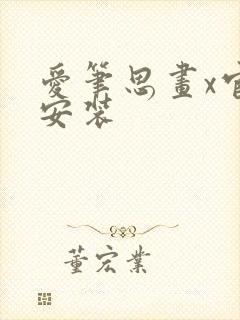 愛筆思畫x官
安裝
董宏業